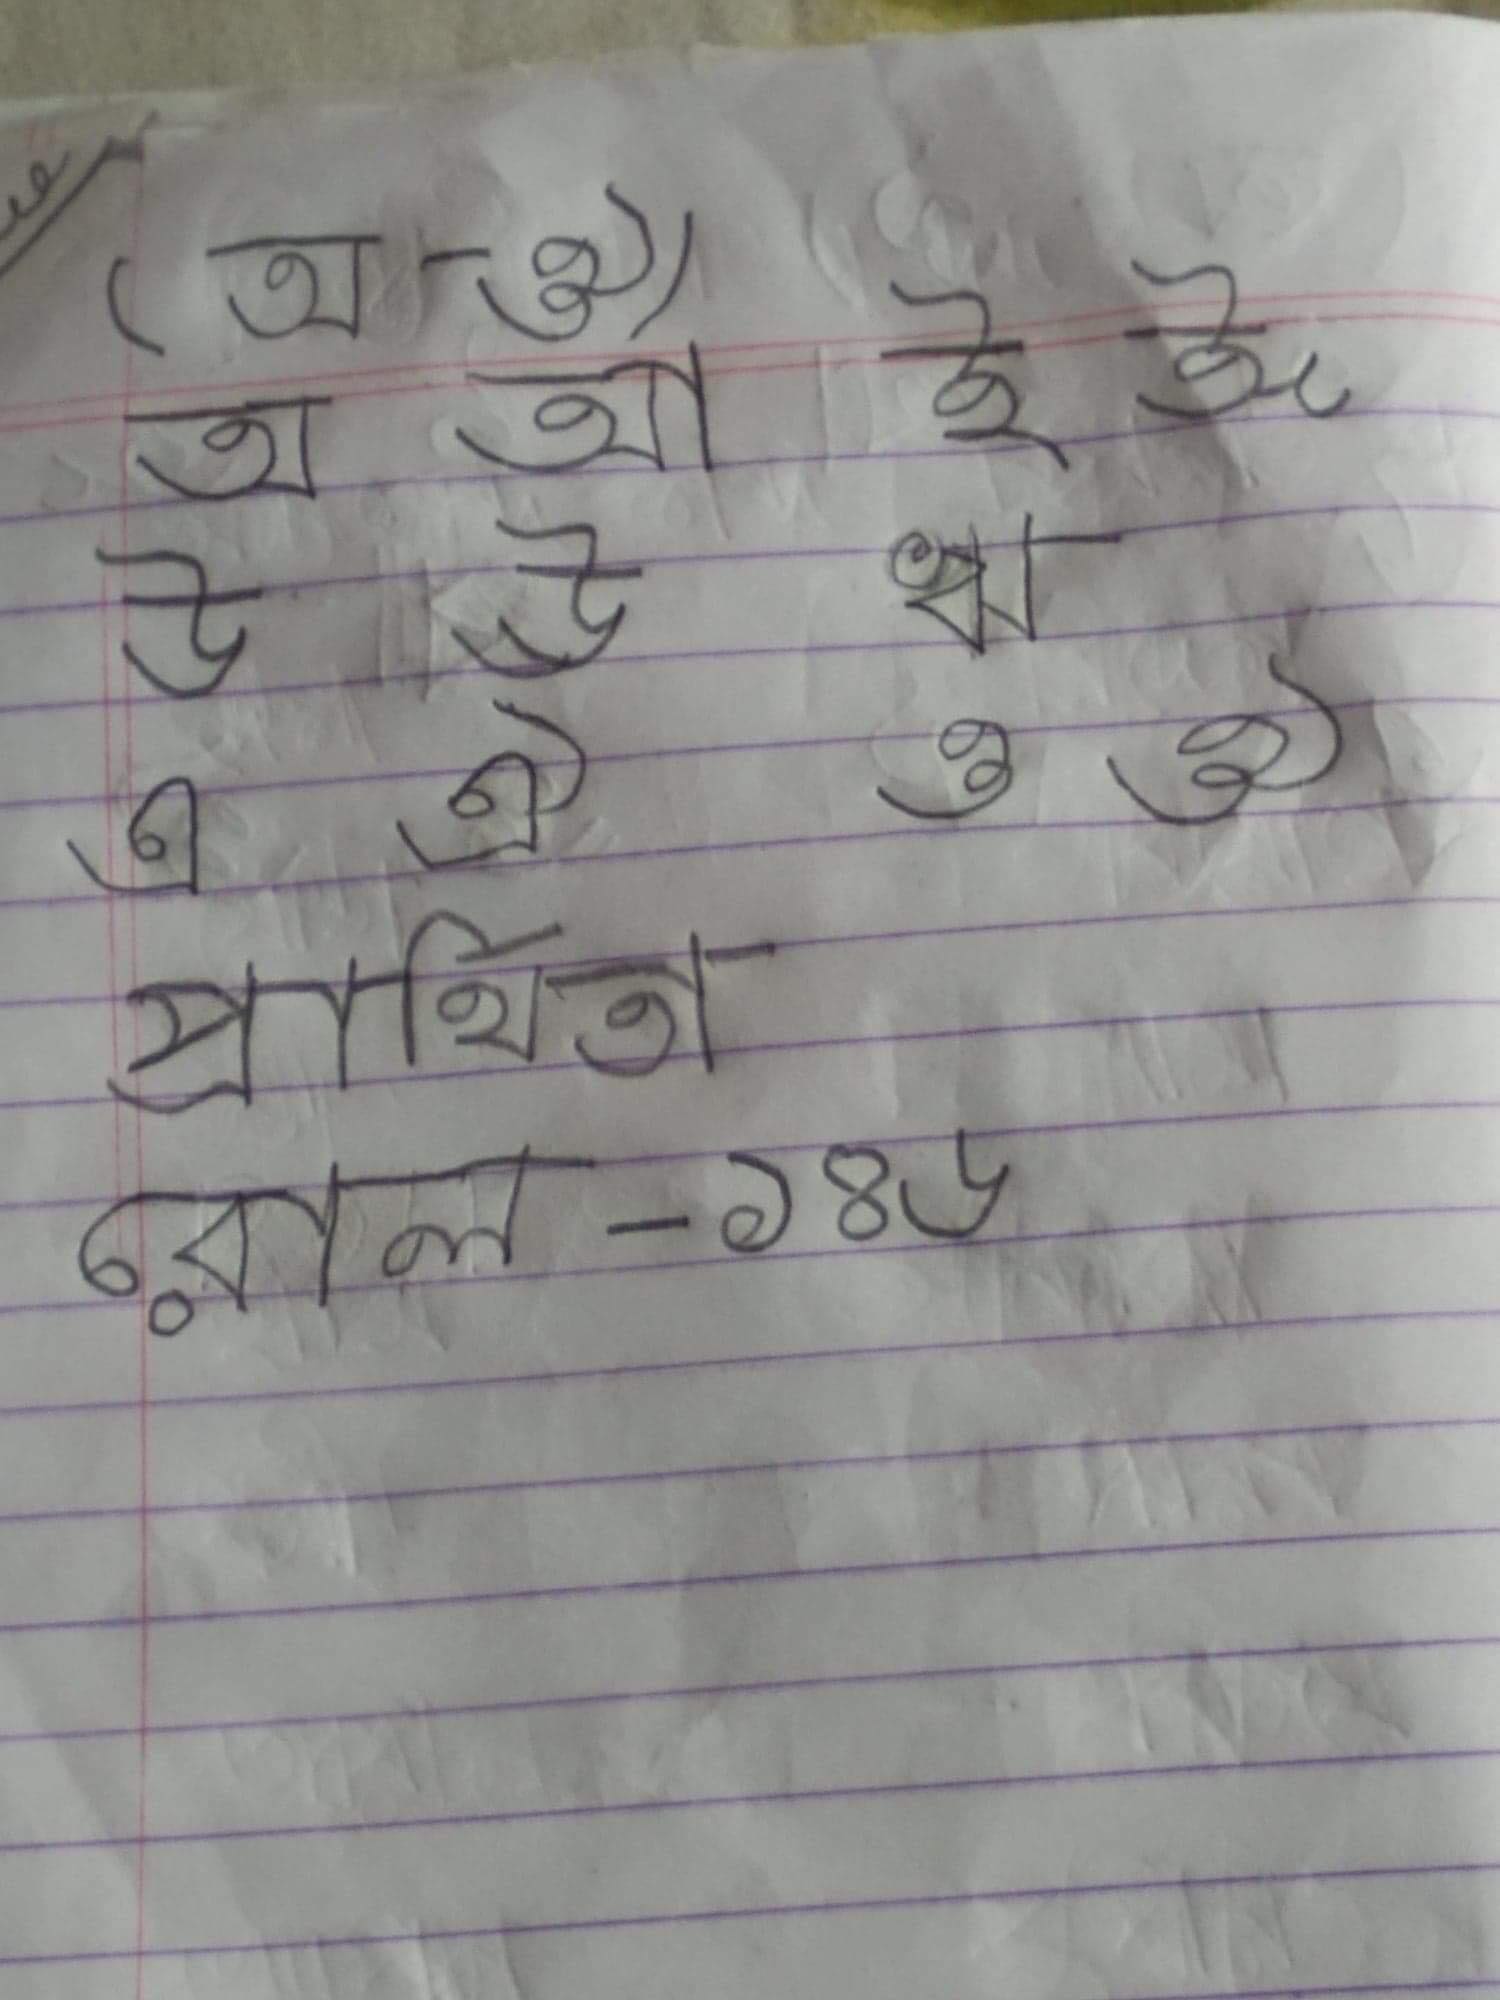 (অ-ঔ)
অ আ ই ঈ
উ ঊ ঋ
এ ঐ ও ঔ
প্রার্থিতা
রোল -১৪৬